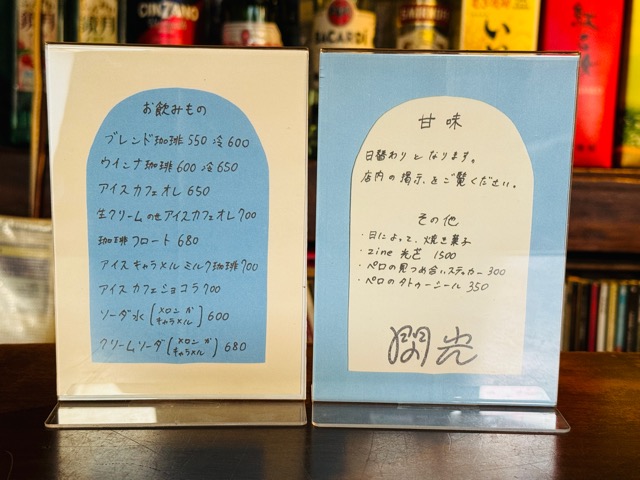 CINZANO
BACARDÍ
お飲みもの
ブレンド珈琲 550 冷 600
ウインナ珈琲 600 冷 650
アイスカフェオレ 650
生クリームのせアイスカフェオレ 700
珈琲フロート 680
アイスキャラメルミルク珈琲 700
アイスカフェショコラ 700
ソーダ水 [メロン か キャラメル] 600
クリームソーダ [メロン か キャラメル] 680
甘味
日替わりとなります。
店内の掲示をご覧ください。
その他
・日によって、焼き菓子
・zine 光芒 1500
・ペロの見つめ合いステッカー 300
・ペロのタトゥーシール 350